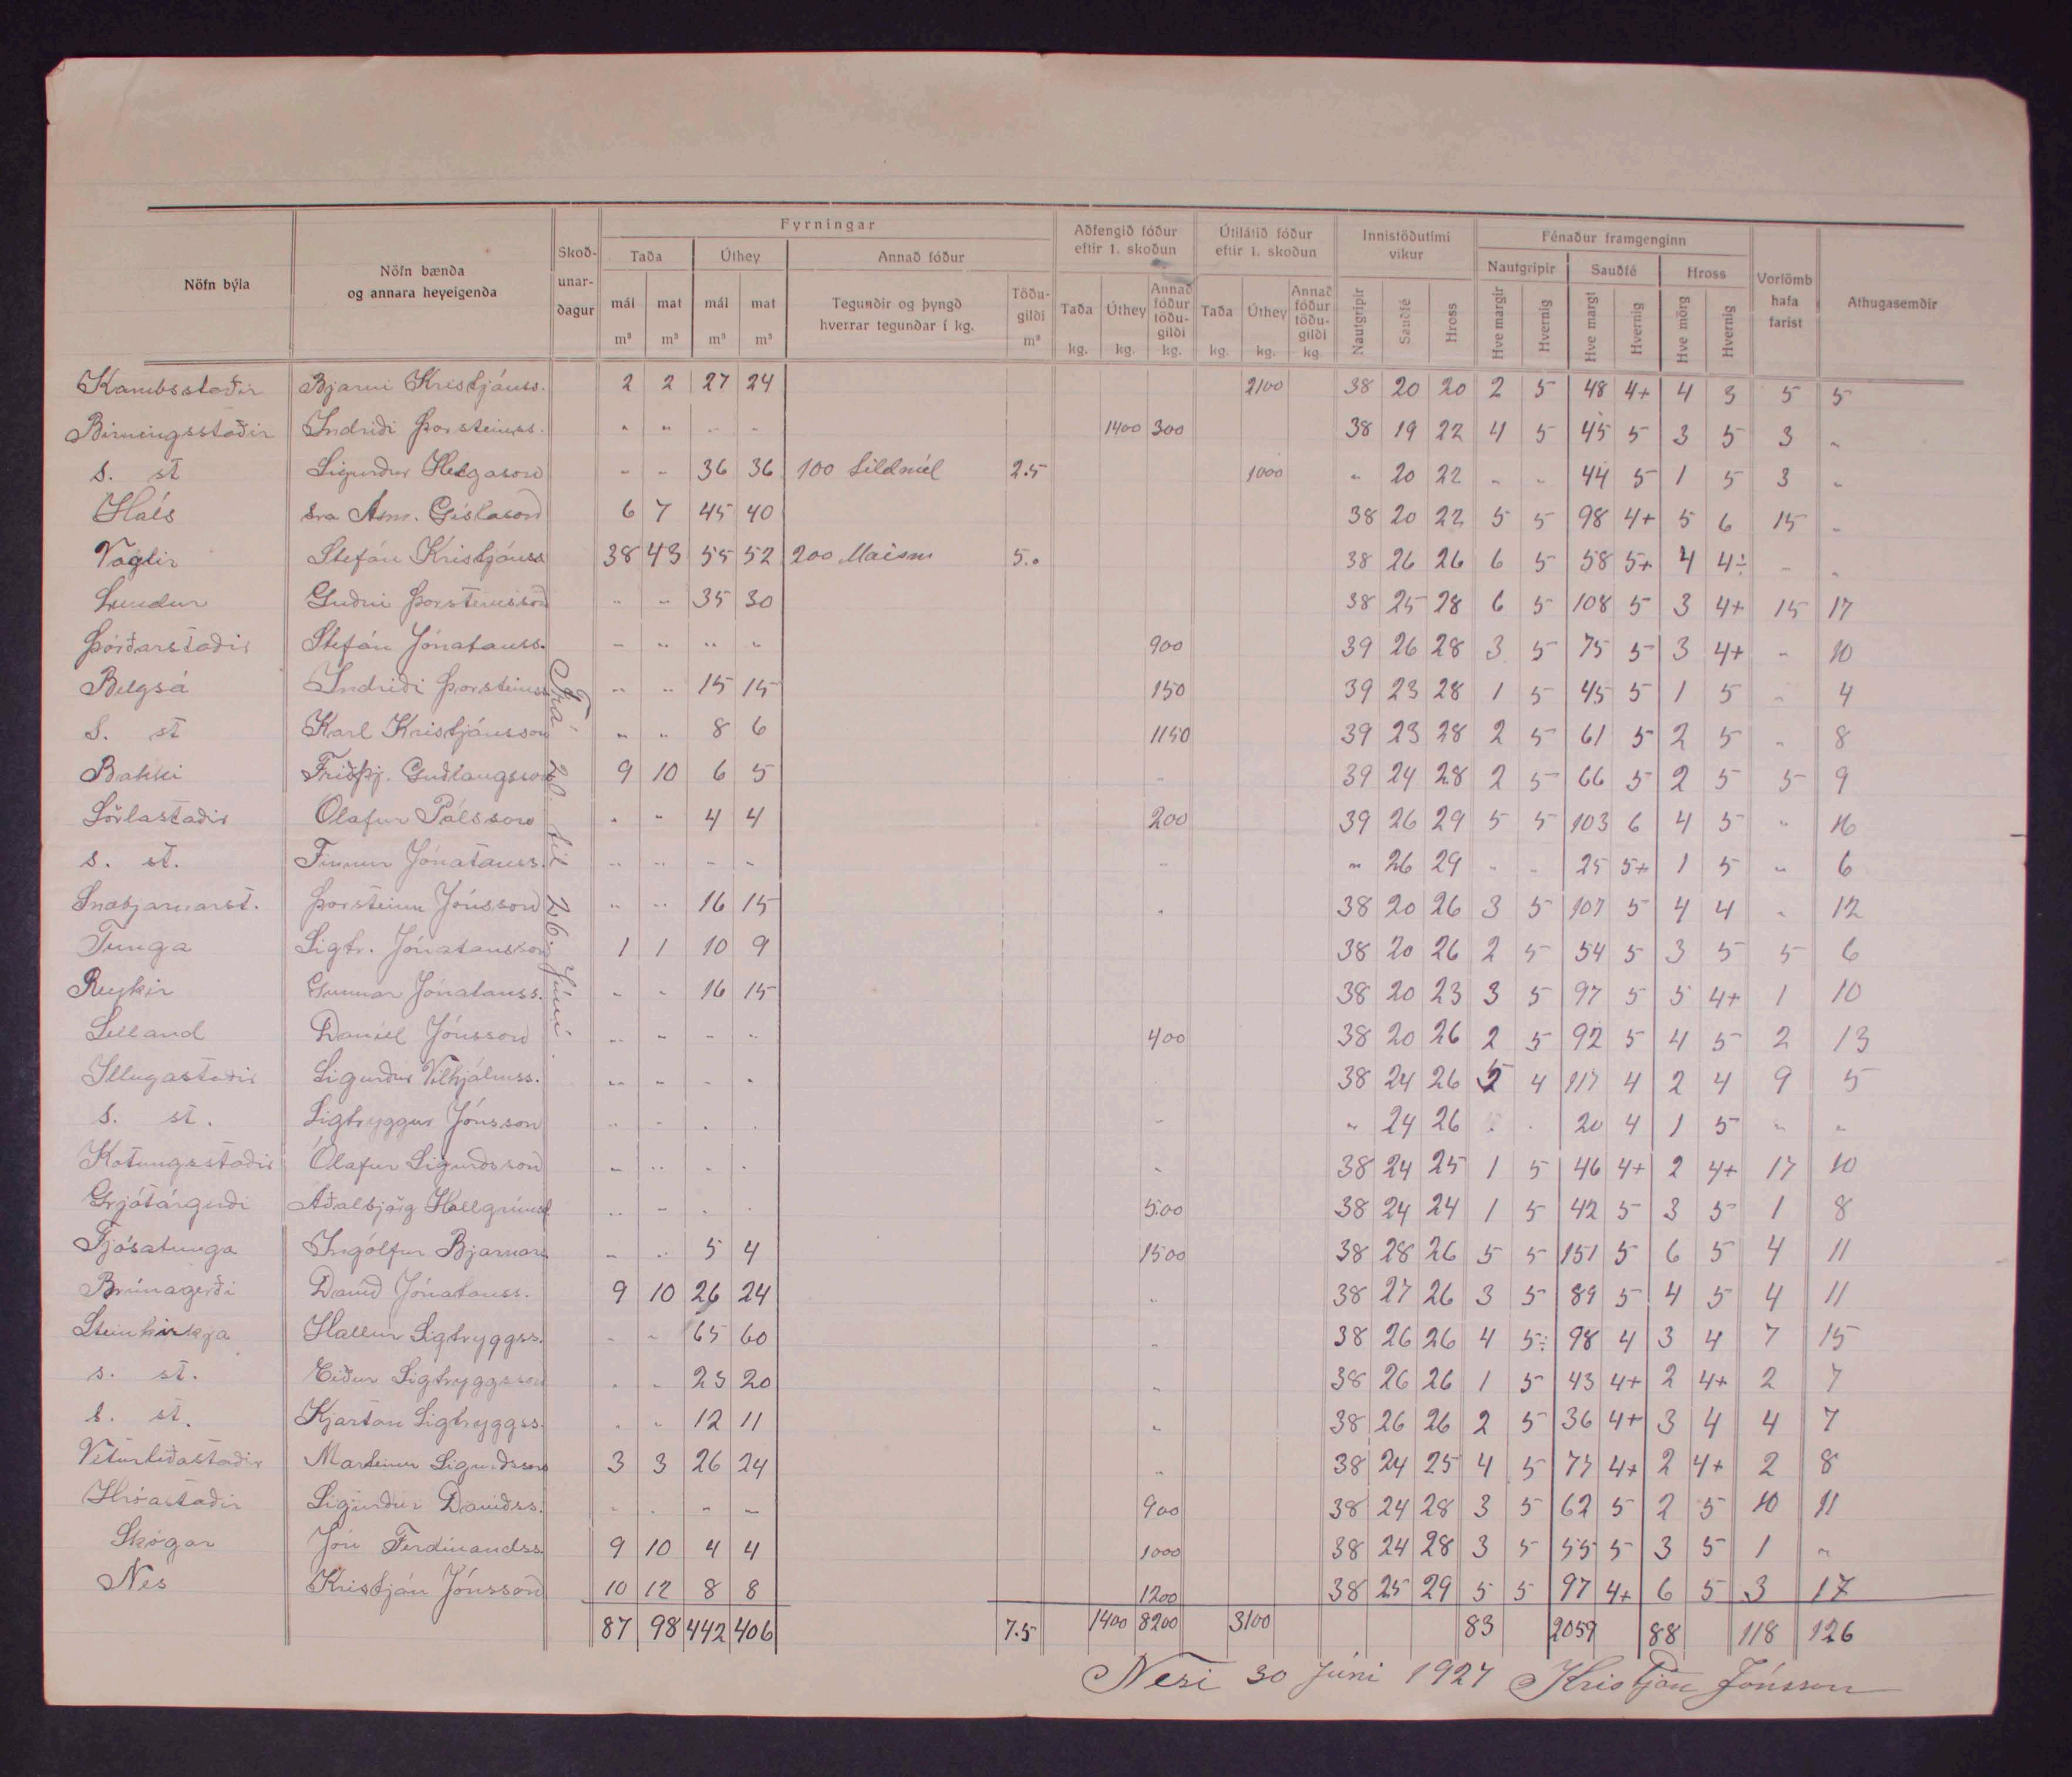 Fyrningar
Aðfengið fóður eftir 1. skoðun
Útilátið fóður eftir 1. skoðun
Innistöðutími vikur
Fénaður framgenginn
Nöfn býla
Nöfn bænda og annara heyeigenda
Skoð- unar- dagur
Taða
Úthey
Annað fóður
Nautgripir
Sauðfé
Hross
Vorlömb hafa farist
Athugasemdir
mál m³ mat m³ mál m³ mat m³
Tegundir og þyngd hverrar tegundar í kg.
Töðu- gildi m³
Taða kg. Úthey kg. Annað fóður töðu- gildi kg.
Taða kg. Úthey kg. Annað fóður töðu- gildi kg
Nautgripir Sauðfé Hross
Hve margir Hvernig Hve margt Hvernig Hve mörg Hvernig
Frá 20. til 26. Júní.
Kambsstaðir Bjarni Kristjánss. 2 2 27 24 2100 38 20 20 2 5 48 4+ 4 3 5 5
Birningsstaðir Indriði Þorsteinss. " " " " 1400 300 38 19 22 4 5 45 5 3 5 3 "
s. st Sigurður Helgason " " 36 36 100 Síldmél 2.5 1000 " 20 22 " " 44 5 1 5 3 "
Háls sra Ásm. Gíslason 6 7 45 40 38 20 22 5 5 98 4+ 5 6 15 "
Vaglir Stefán Kristjánss 38 43 55 52 200 Maism 5.0 38 26 26 6 5 58 5+ 4 4÷ " "
Lundur Guðni Þorsteinsson " " 35 30 38 25 28 6 5 108 5 3 4+ 15 17
Þórðarstaðir Stefán Jónatanss. " " " " 900 39 26 28 3 5 75 5 3 4+ " 10
Belgsá Indriði Þorsteinss " " 15 15 150 39 23 28 1 5 45 5 1 5 " 4
s. st Karl Kristjánsson " " 8 6 1150 39 23 28 2 5 61 5 2 5 " 8
Bakki Friðþj. Guðlaugsson 9 10 6 5 " 39 24 28 2 5 66 5 2 5 5 9
Sörlastaðir Ólafur Pálsson " " 4 4 200 39 26 29 5 5 103 6 4 5 " 16
s. st. Finnur Jónatanss. " " " " " " 26 29 " " 25 5+ 1 5 " 6
Snæbjarnarst. Þorsteinn Jónsson " " 16 15 " 38 20 26 3 5 107 5 4 4 " 12
Tunga Sigtr. Jónatansson 1 1 10 9 38 20 26 2 5 54 5 3 5 5 6
Reykir Gunnar Jónatanss. " " 16 15 38 20 23 3 5 97 5 5 4+ 1 10
Selland Daníel Jónsson " " " " 400 38 20 26 2 5 92 5 4 5 2 13
Illugastaðir Sigurður Vilhjálmss. " " " " 38 24 26 5 4 117 4 2 4 9 5
s. st. Sigtryggur Jónsson " " " " " " 24 26 " " 20 4 1 5 " "
Kotungsstaðir Ólafur Sigurðsson " " " " " 38 24 25 1 5 46 4+ 2 4+ 17 10
Grjótárgerði Aðalbjörg Hallgrímsd " " " " 500 38 24 24 1 5 42 5 3 5 1 8
Fjósatunga Ingólfur Bjarnars " " 5 4 1500 38 28 26 5 5 151 5 6 5 4 11
Brúnagerði Davíð Jónatanss. 9 10 26 24 " 38 27 26 3 5 89 5 4 5 4 11
Steinkirkja Hallur Sigtryggss. " " 65 60 " 38 26 26 4 5÷ 98 4 3 4 7 15
s. st. Eiður Sigtryggsson " " 23 20 " 38 26 26 1 5 43 4+ 2 4+ 2 7
s. st. Kjartan Sigtryggss. " " 12 11 " 38 26 26 2 5 36 4+ 3 4 4 7
Veturliðastaðir Marteinn Sigurðsson 3 3 26 24 " 38 24 25 4 5 77 4+ 2 4+ 2 8
Hróastaðir Sigurður Davíðss. " " " " 900 38 24 28 3 5 62 5 2 5 10 11
Skógar Jón Ferdinandss. 9 10 4 4 1000 38 24 28 3 5 55 5 3 5 1 "
Nes Kristján Jónsson 10 12 8 8 1200 38 25 29 5 5 97 4+ 6 5 3 17
87 98 442 406 7.5 1400 8200 3100 83 2059 88 118 126
Nesi 30 Júní 1927 Kristján Jónsson